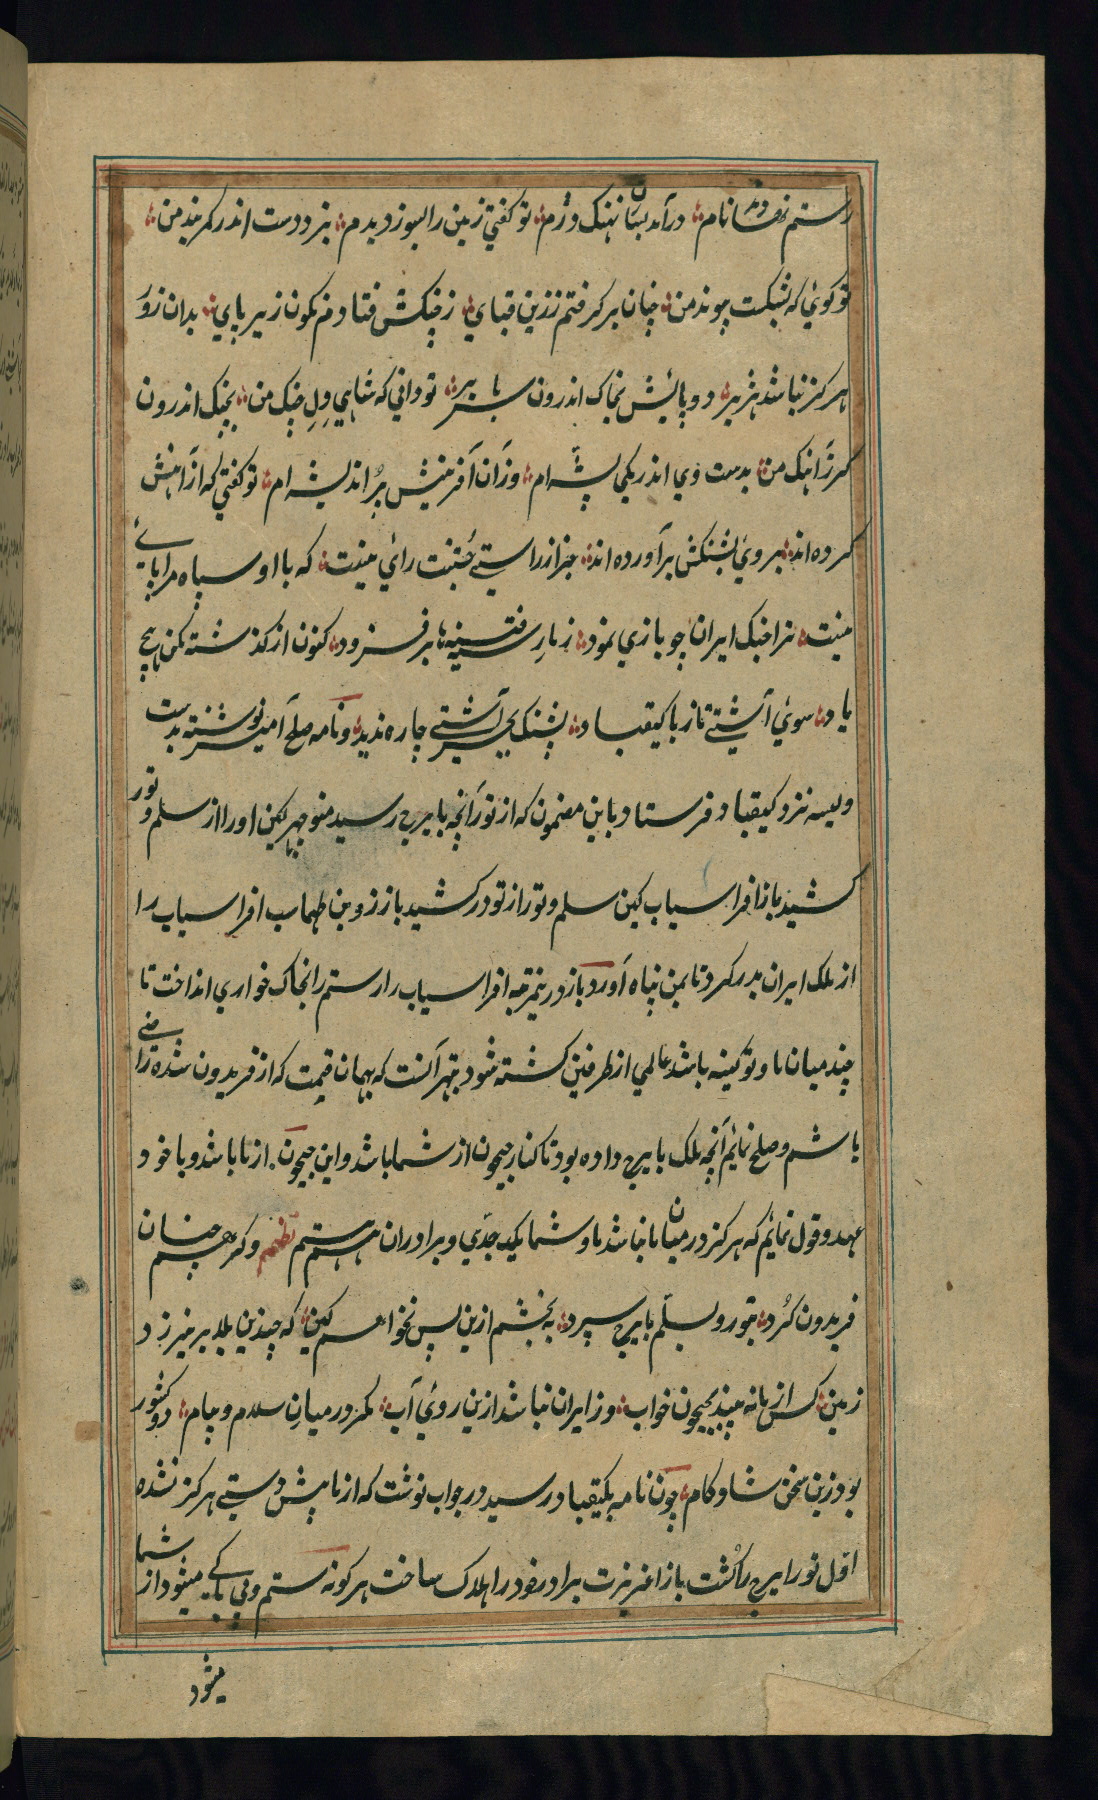 رستم نهادند نامم ؞ درآمد بسان نهنک دژم ؞ تو کفتي زمین را بسوزد بدم ؞ بزد دست اندر کمربند من ؞
تو کوئي که بشکست پیوند من ؞ چنان برکرفتم ززین قباي ؞ زچنکش فتادم نکون زیر پاي ؞ بدان زور
هرکز نباشد هژبر ؞ دو پایش بخاک اندرون سر بابر ؞ تو داني که شاهي دل چنک من ؞ بجنک اندرون
کرز آهنک من ؞ بدست وي اندر یکي پشه ام ؞ وزآن آفرینش پر اندیشه ام ؞ تو کفتي که از آهنش
کرده اند ؞ بروي بشنکش برآورده اند ؞ جز از راستي جستنت راي نیست ؞ که با او سپاه مرا پاي
نیست ؞ ترا جنک ایران چو بازي نمود ؞ زبار سفتینه ها برفزود ؞ کنون از کذشته مکن هیچ
یاد ؞ سوئ آشتي تاز با کیقباد ؞ پشنک بجز آشتي چاره ندید ؞ و نامه صلح آمیز نوشته بدست
ویسه نزد کیقباد فرستاد باین مضمون که از تور آنچه بایرج رسید منوچهر کین او را از سلم و تور
کشید باز افراسیاب کین سلم و تور از نوذر کشید باز زو بن طهماسب افراسیاب را
از ملک ایران بدر کرد تا بمن پناه آورد باز درینمرتبه افراسیاب را رستم را بخاک خواري انداخت تا
چند میان ما و تو کینه باشد عالمي از طرفین کشته شود بهتر آنست که بهمان قیمت که از فریدون شده راضي
باشیم و صلح نمائیم آنچه ملک بایرج داده بود تا کنار جیحون از شما باشد و این جیحون از ما باشد و با خود
عهد و قول نمائیم که هرکز در میان ما نباشد ما و شما یکجدي و برادران هستیم نظم وکر همچنان
فریدون کرد ؞ بتور و بسلم بایرج سپرد ؞ به بخشم ازین پس نخواهم کین ؞ که چندین بلا برخیزد ز
زمین ؞ کس از ما نه بیند بجیحون خواب ؞ وز ایران نباشد ازین روئ آب ؞ مکر در میان سلام و پیام ؞ دو کشور
بود زین سخن شادکام ؞ چون نامه بکیقباد رسید در جواب نوشت که از ما پیش دستي هرکز نشده
اول تور ایرج را کشت باز اغریرث برادر خود را هلاک ساخت هر کونه ستم و بي باکي میشود از شما
میشود